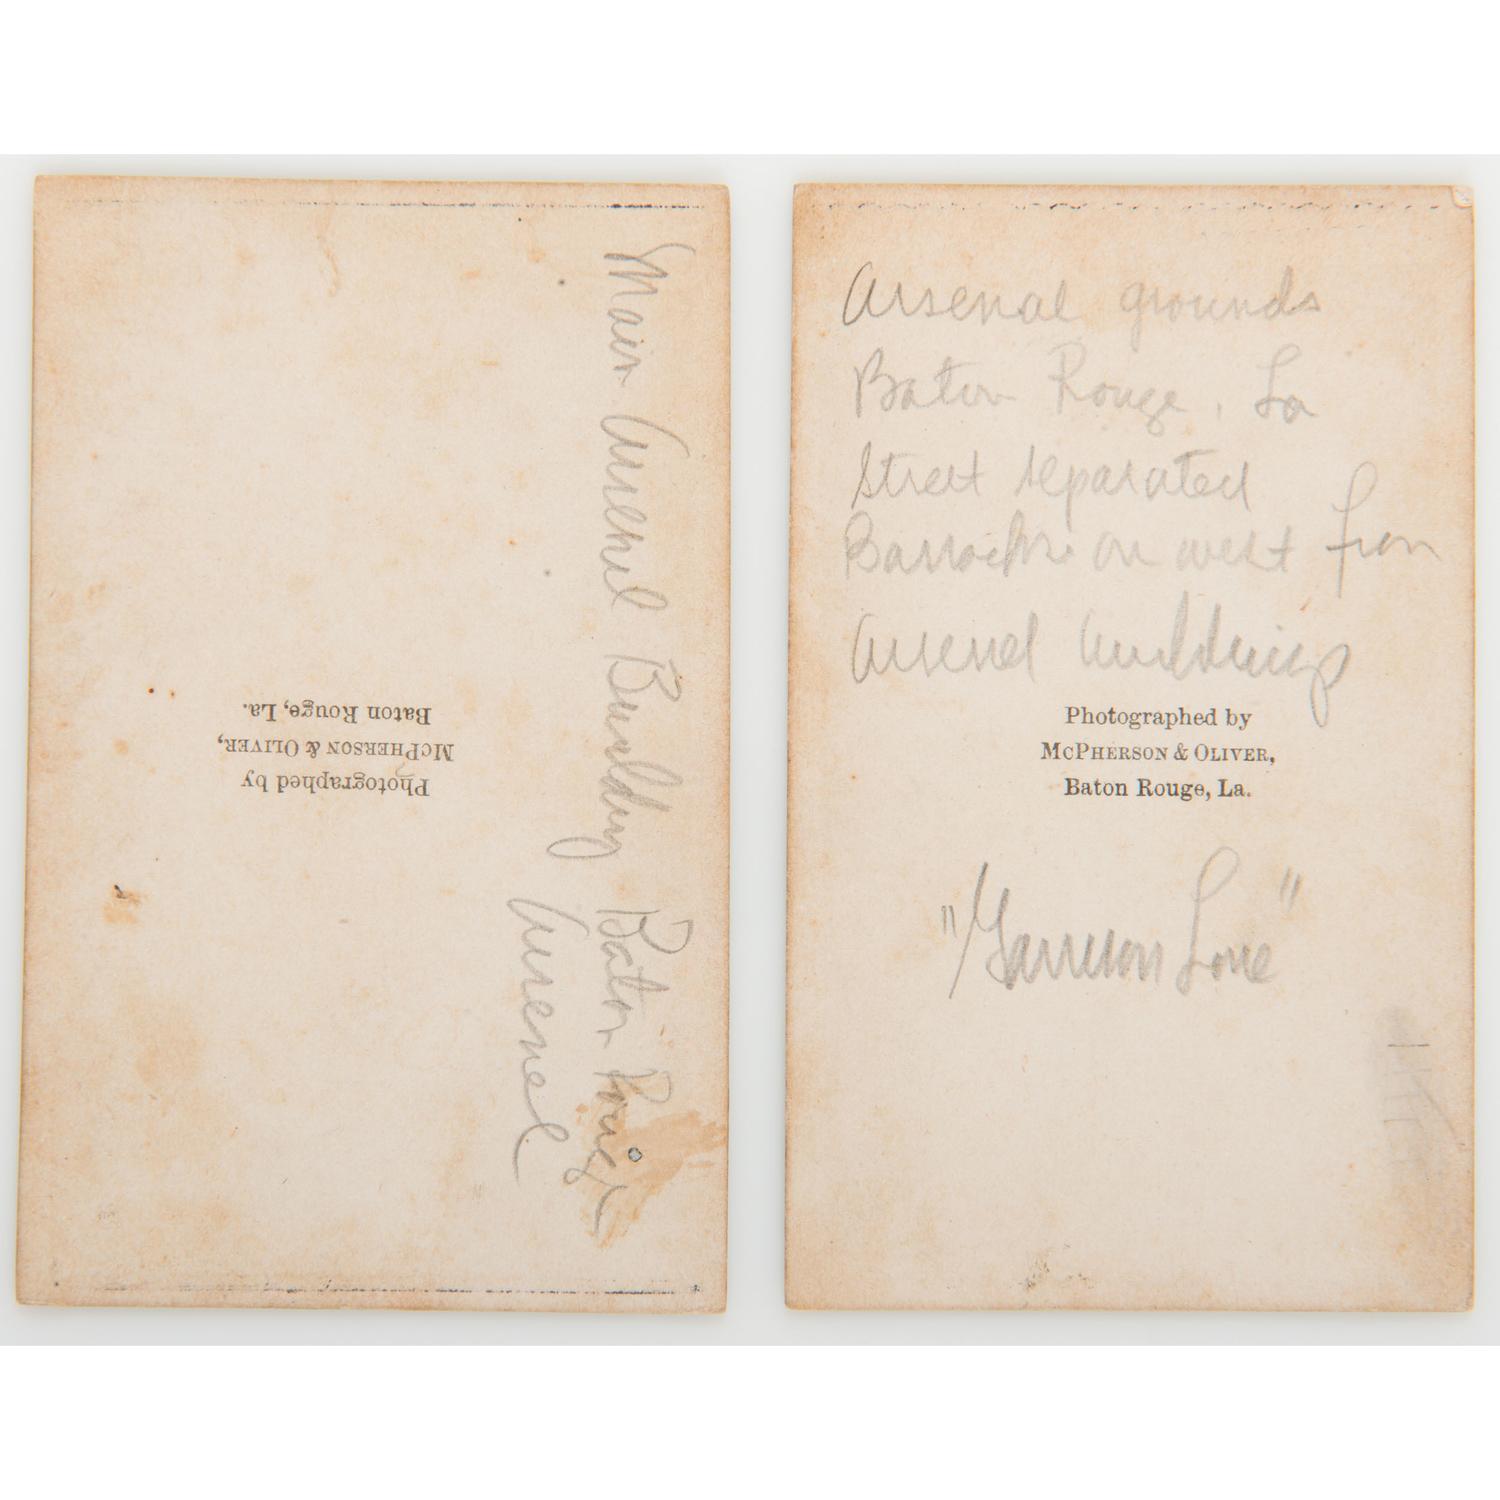 Main Arsenal Building Baton Rouge
Arsenal
Photographed by
McPHERSON & OLIVER,
Baton Rouge, La.
Arsenal grounds
Baton Rouge, La
Street separated
Barracks on west from
Arsenal buildings
Photographed by
McPHERSON & OLIVER,
Baton Rouge, La.
"Garrison Lane"